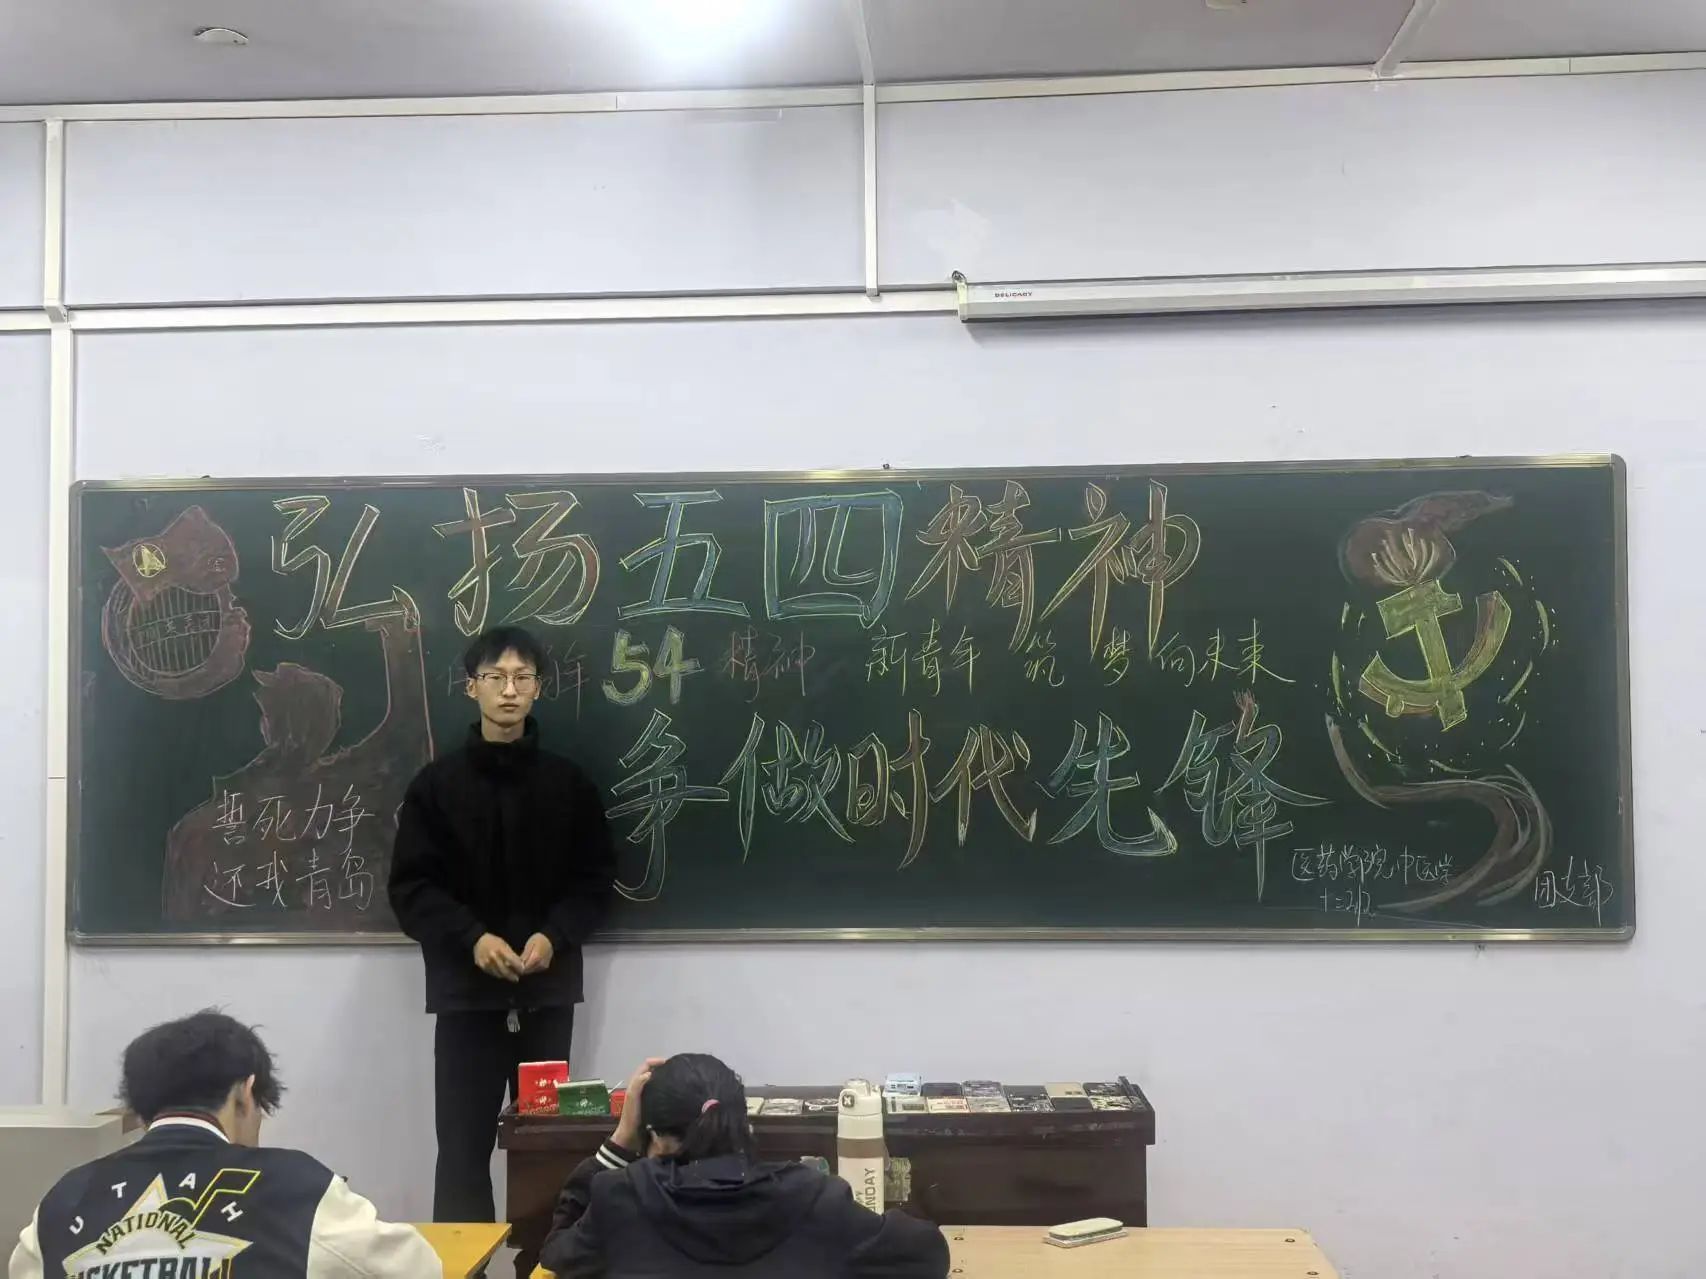 DELIGADY
弘扬五四精神
年 54 精神 新青年 筑 梦 向未来
争做时代先锋
誓死力争
还我青岛
医药学院中医学
十二班
团支部
UTAH
NATIONAL
BASKETBALL